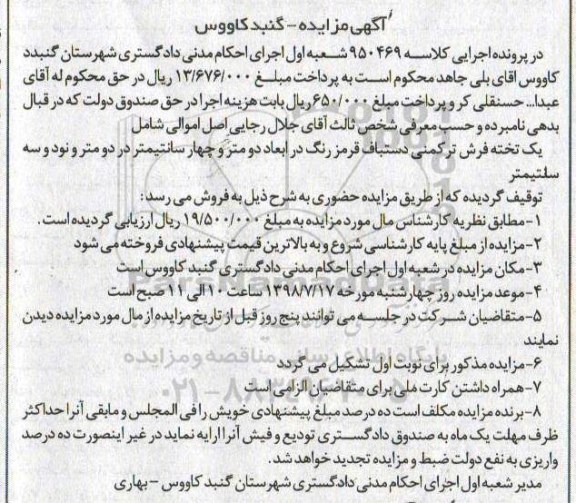 آگهی مزایده - گنبد کاووس
در پرونده اجرایی کلاسه ۹۵۰۴۶۹ شعبه اول اجرای احکام مدنی دادگستری شهرستان گنبد
کاووس اقای بلی جاهد محکوم است به پرداخت مبلغ ۱۳/۶۷۶/۰۰۰ ریال در حق محکوم له آقای
عبدا... حسنقلی کر و پرداخت مبلغ ۶۵۰/۰۰۰ ریال بابت هزینه اجرا در حق صندوق دولت که در قبال
بدهی نامبرده و حسب معرفی شخص ثالث آقای جلال رجایی اصل اموالی شامل
یک تخته فرش ترکمنی دستباف قرمز رنگ در ابعاد دو متر و چهار سانتیمتر در دو متر و نود و سه
سلتیمتر
توقیف گردیده که از طریق مزایده حضوری به شرح ذیل به فروش می رسد:
۱- مطابق نظریه کارشناس مال مورد مزایده به مبلغ ۱۹/۵۰۰/۰۰۰ ریال ارزیابی گردیده است.
۲- مزایده از مبلغ پایه کارشناسی شروع و به بالاترین قیمت پیشنهادی فروخته می شود
۳- مکان مزایده در شعبه اول اجرای احکام مدنی دادگستری گنبد کاووس است
۴- موعد مزایده روز چهارشنبه مورخه ۱۳۹۸/۷/۱۷ ساعت ۱۰ الی ۱۱ صبح است
۵- متقاضیان شرکت در جلسه می توانند پنج روز قبل از تاریخ مزایده از مال مورد مزایده دیدن
نمایند
۶- مزایده مذکور برای نوبت اول تشکیل می گردد
۷- همراه داشتن کارت ملی برای متقاضیان الزامی است
۸- برنده مزایده مکلف است ده درصد مبلغ پیشنهادی خویش را فی المجلس و مابقی آنرا حداکثر
ظرف مهلت یک ماه به صندوق دادگستری تودیع و فیش آنرا ارایه نماید در غیر اینصورت ده درصد
واریزی به نفع دولت ضبط و مزایده تجدید خواهد شد.
مدیر شعبه اول اجرای احکام مدنی دادگستری شهرستان گنبد کاووس - بهاری
پایگاه اطلاع رسانی مناقصه و مزایده